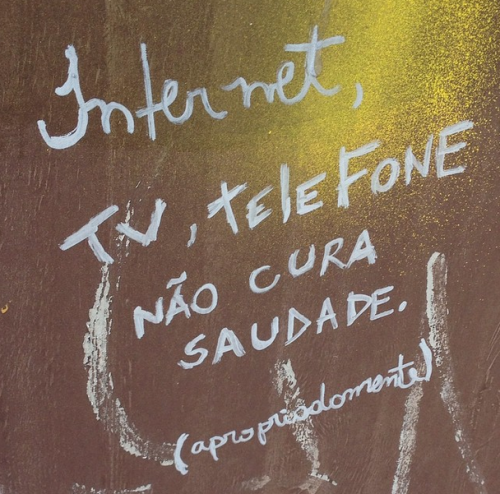 Internet,
TV, teleFONE
NÃO CURA
SAUDADE.
(apropriadamente)